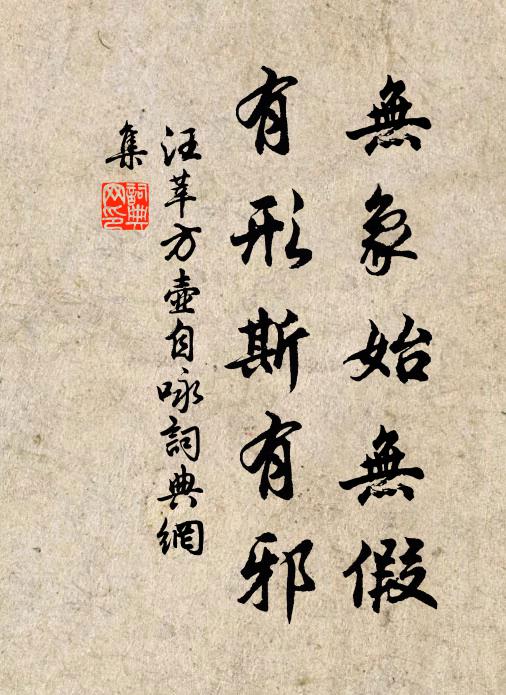 無象始無假
有形斯有邪
汪莘方壺自咏詞典網
集
詞典網印